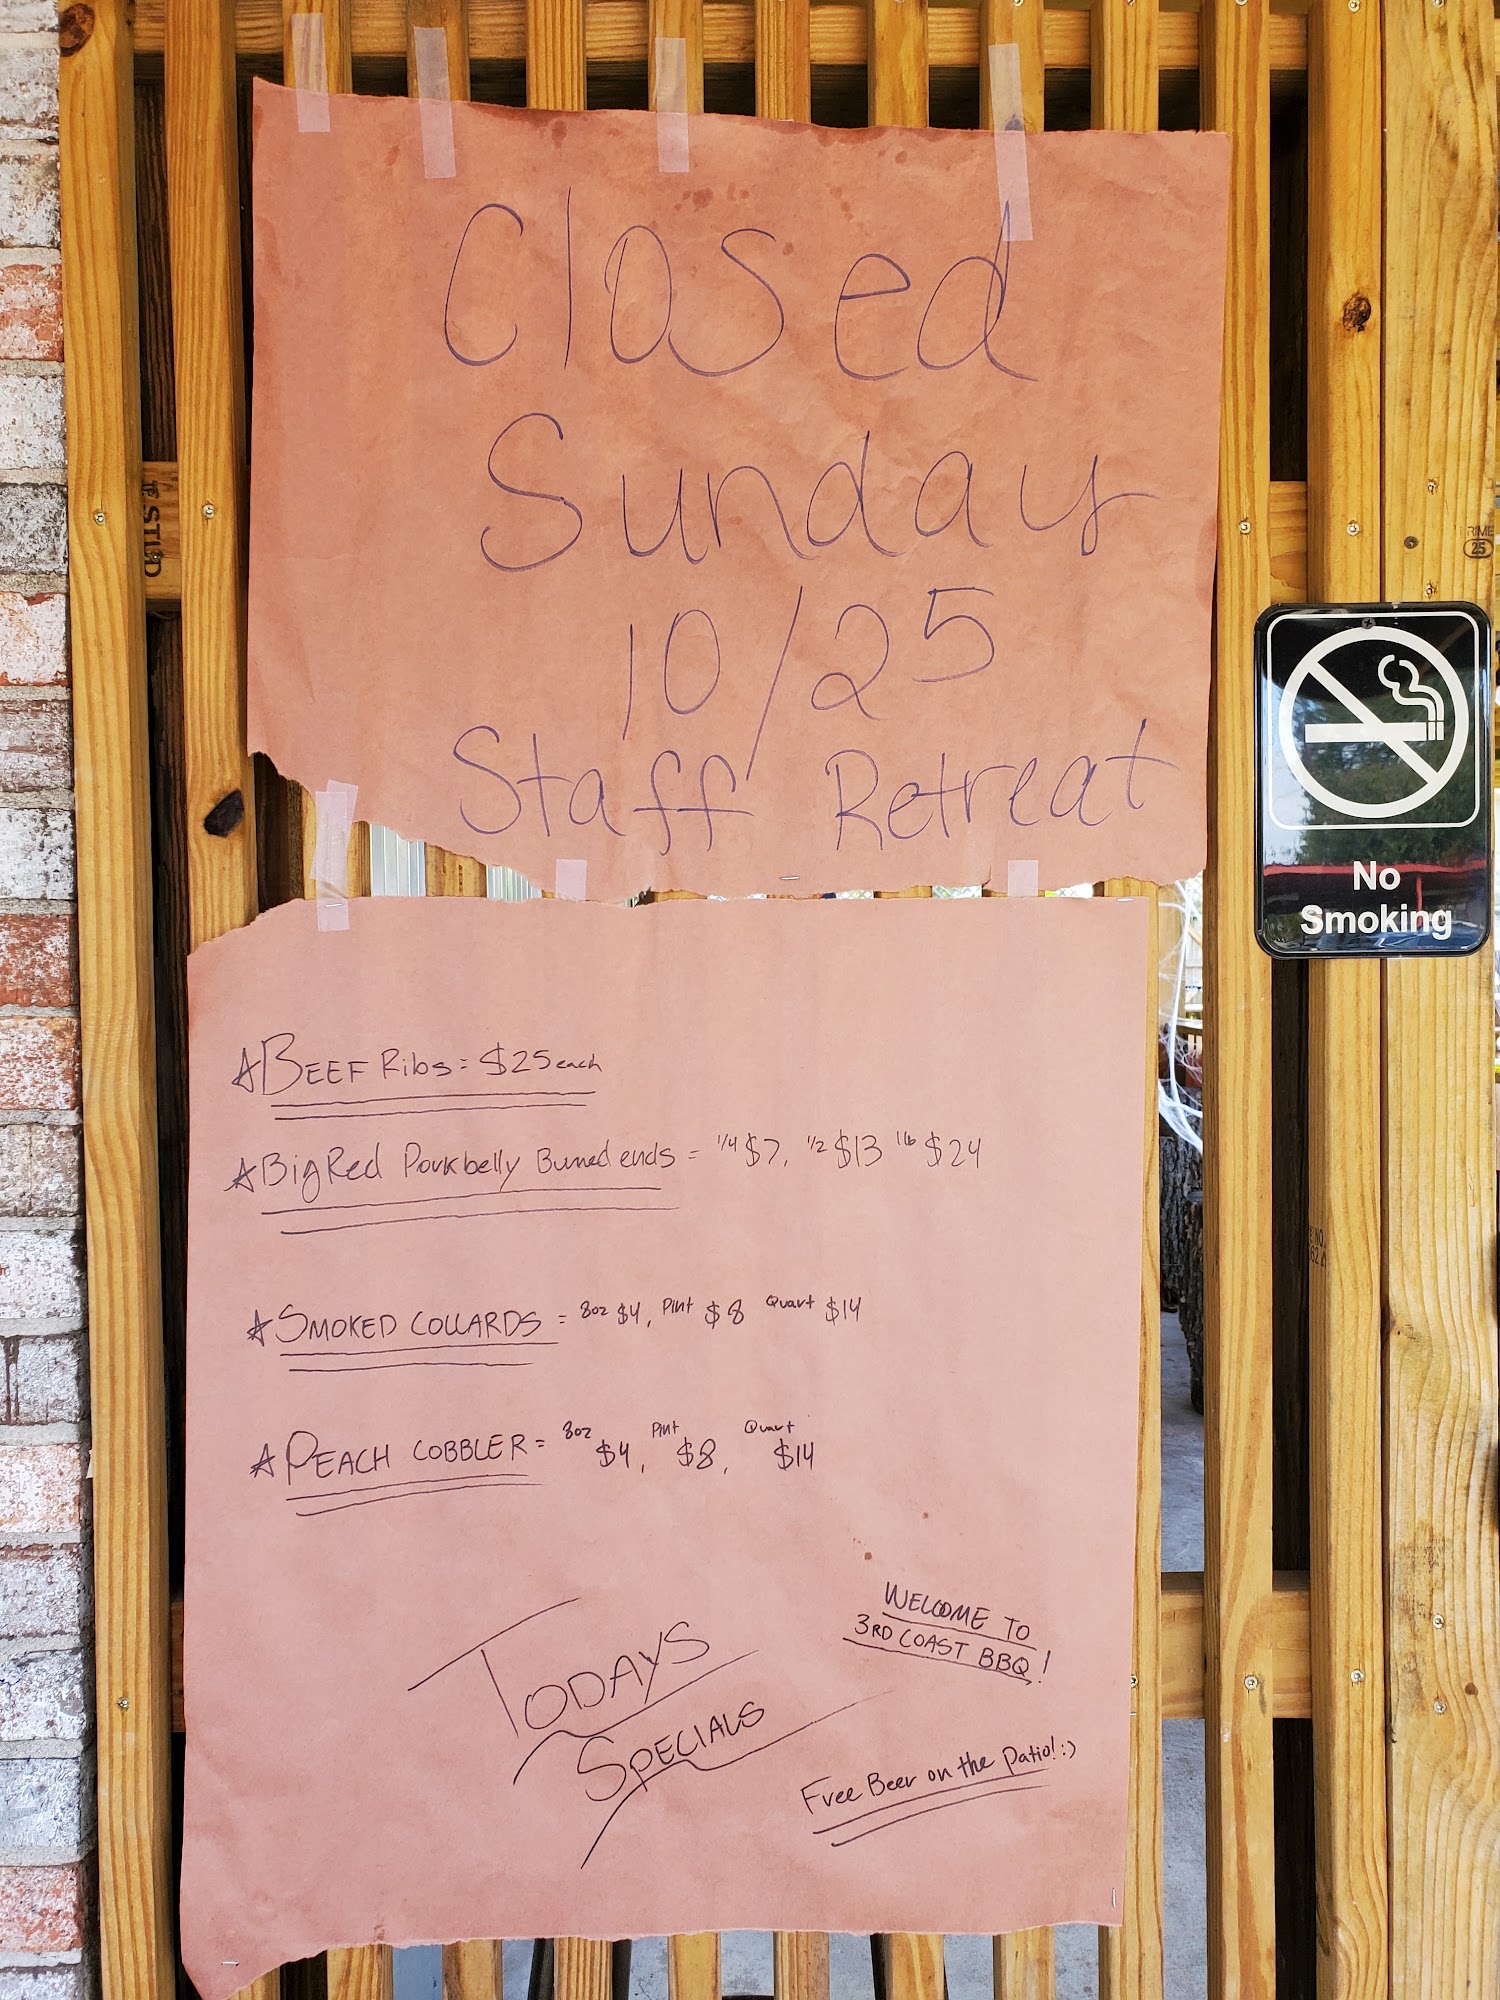 Closed
Sunday
10/25
Staff Retreat
No
Smoking
RIME
25
☆ BEEF Ribs = $25 each
☆ Big Red Porkbelly Burned ends = 1/4 $7, 1/2 $13 1lb $24
☆ SMOKED COLLARDS = 8oz $4, Pint $8 Quart $14
☆ PEACH COBBLER = 8oz $4, Pint $8, Quart $14
WELCOME TO
3RD COAST BBQ!
TODAYS
SPECIALS
Free Beer on the Patio! :)